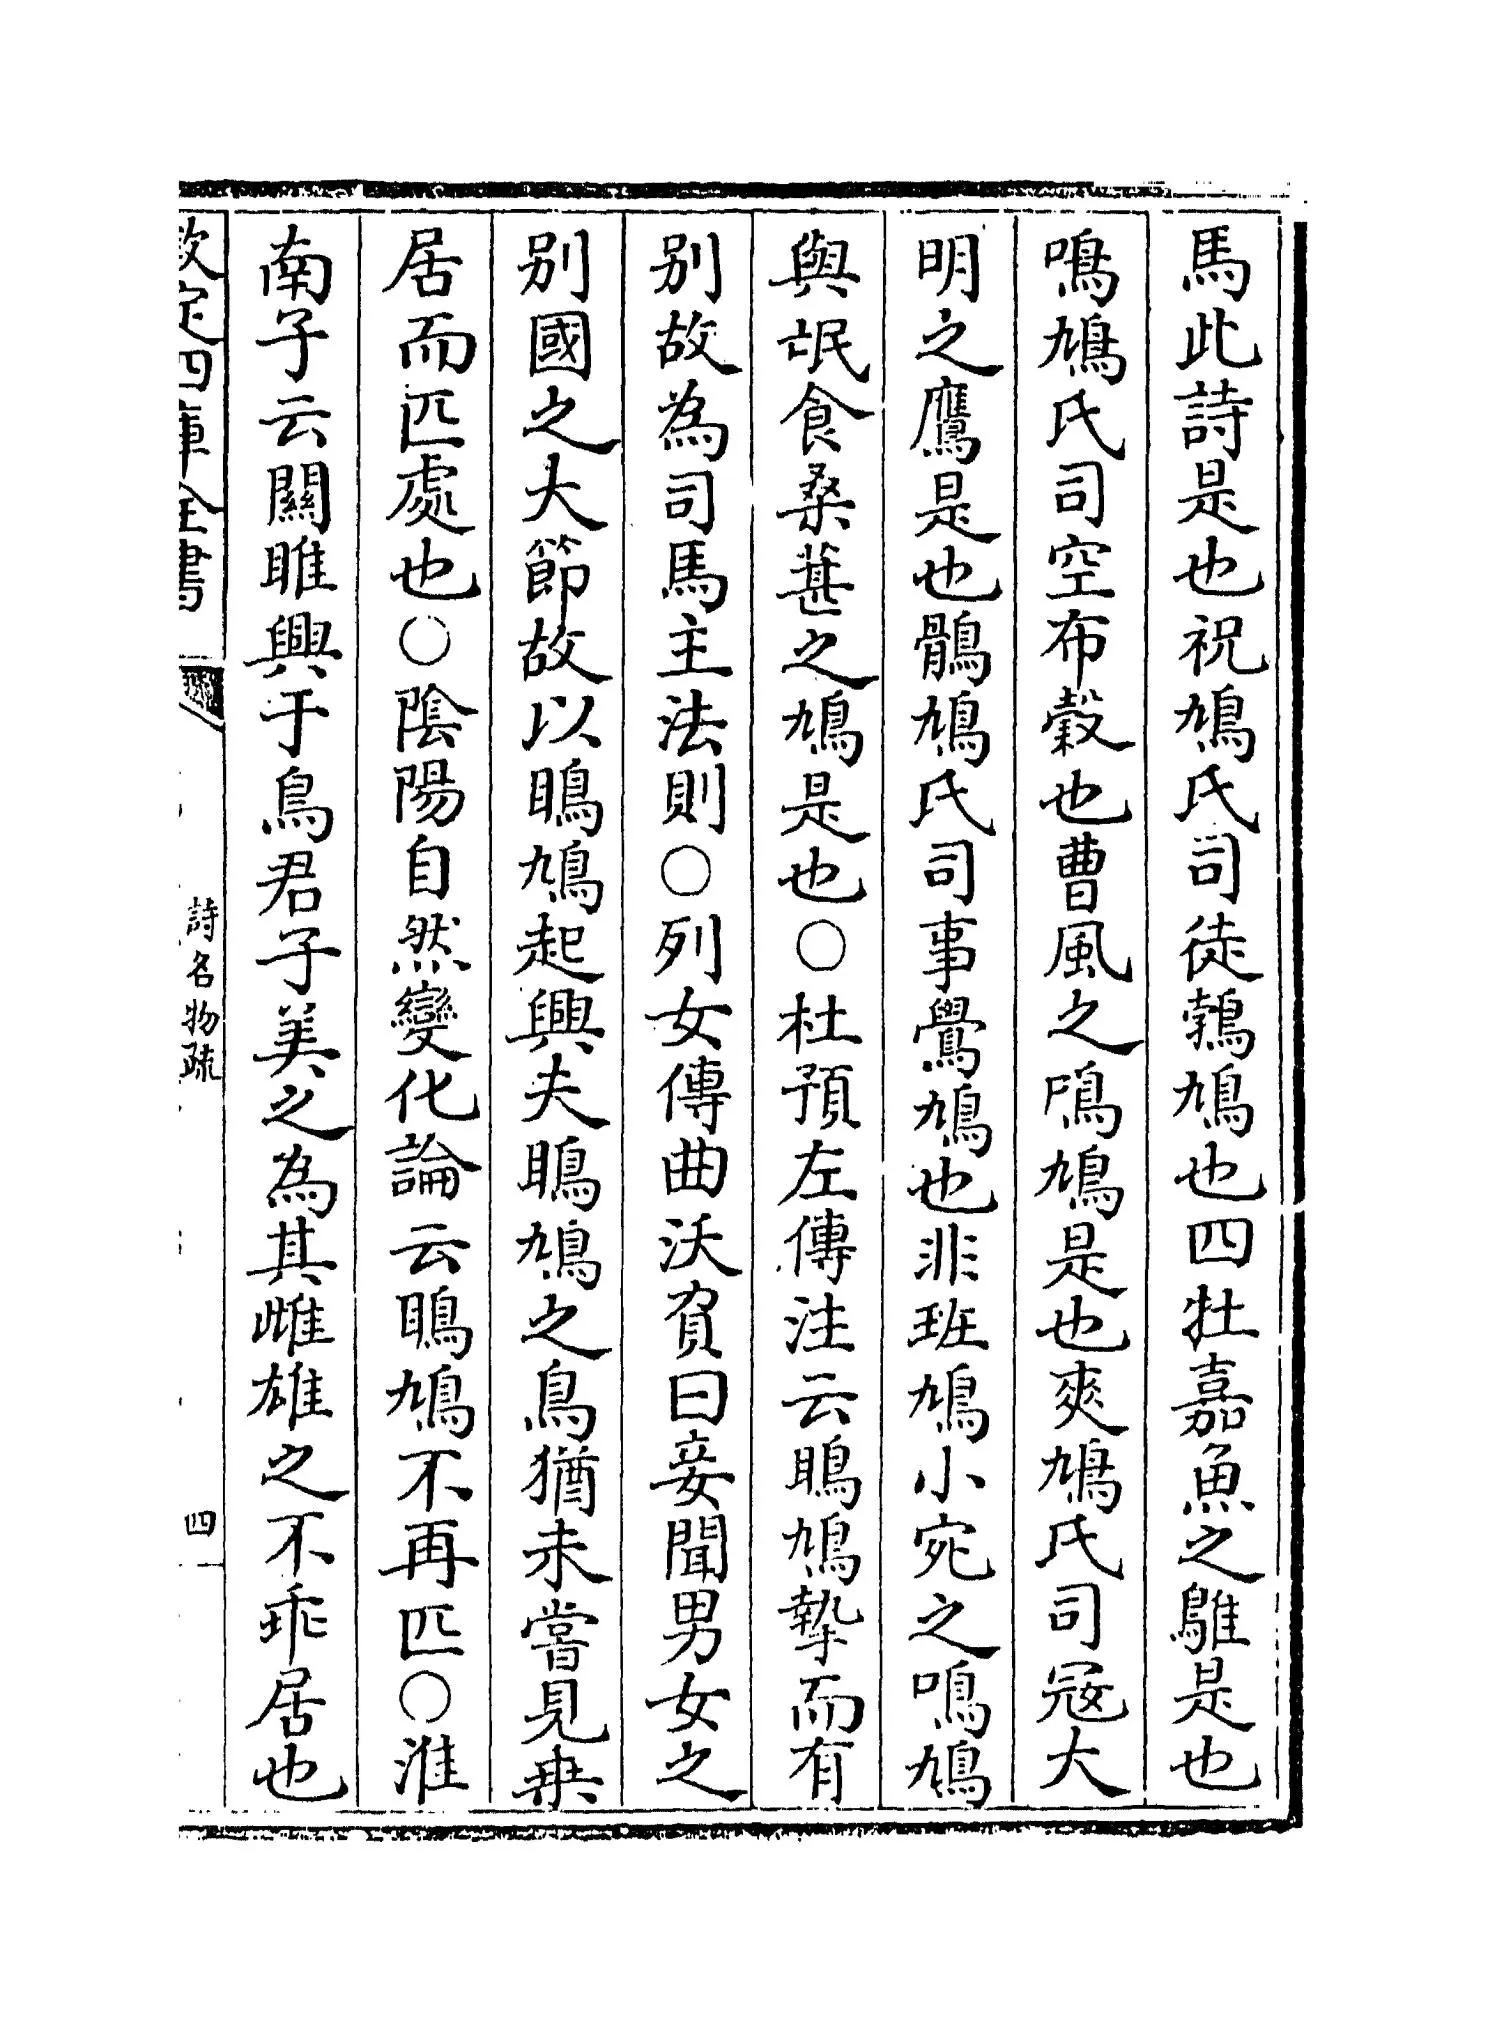 馬此詩是也祝鳩氏司徒鵓鳩也四牡嘉魚之鵻是也
鳴鳩氏司空布榖也曹風之鳲鳩是也爽鳩氏司冦大
明之鷹是也鶻鳩氏司事鷽鳩也非班鳩小宛之鳴鳩
與氓食桑葚之鳩是也○杜預左傳注云鴡鳩摯而有
别故為司馬主法則○列女傳曲沃負曰妾聞男女之
别國之大節故以鴡鳩起興夫鴡鳩之鳥猶未嘗見乗
居而匹處也○陰陽自然變化論云鴡鳩不再匹○淮
南子云關雎興于鳥君子美之為其雌雄之不乖居也
欽定四庫全書
詩名物疏
四